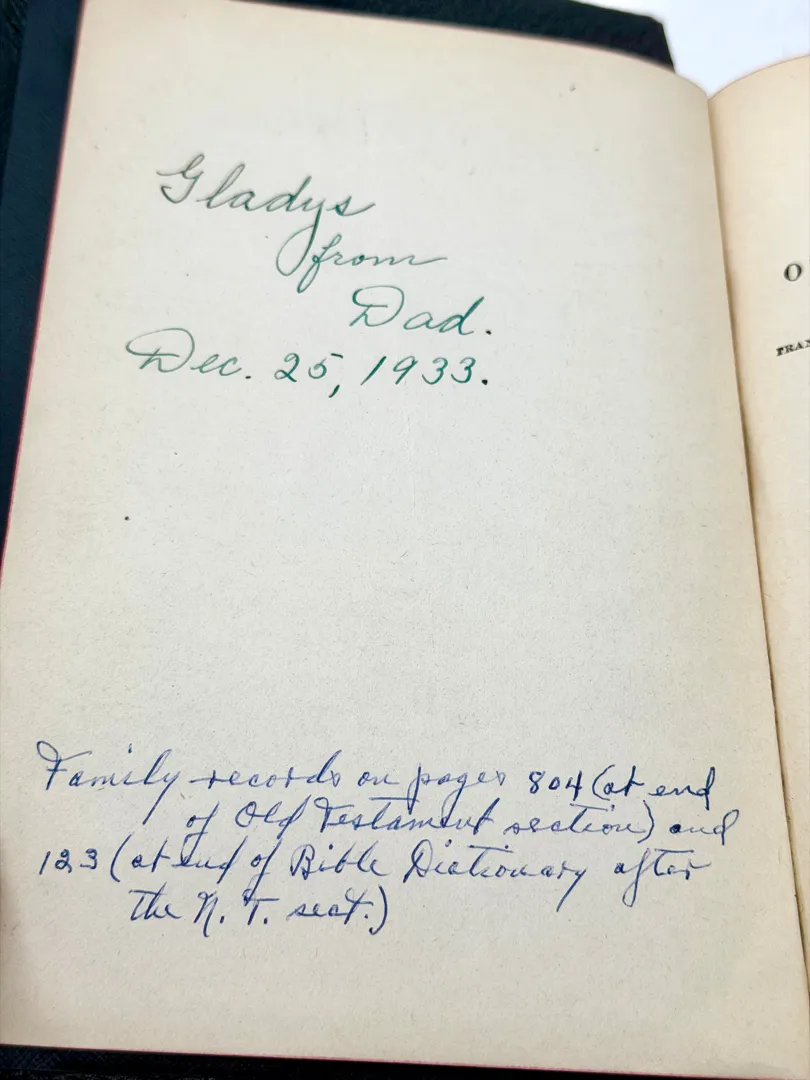 Gladys
from
Dad.
Dec. 25, 1933.
Family records on pages 804 (at end
of Old Testament section) and
123 (at end of Bible Dictionary after
the N. T. sect.)
O
TRAN